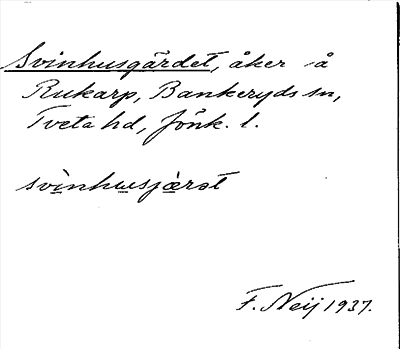 Svinhusgärdet, åker å
Rukarp, Bankeryds sn,
Tveta hd, Jönk. l.
svinhusjærət
F. Neij 1937.